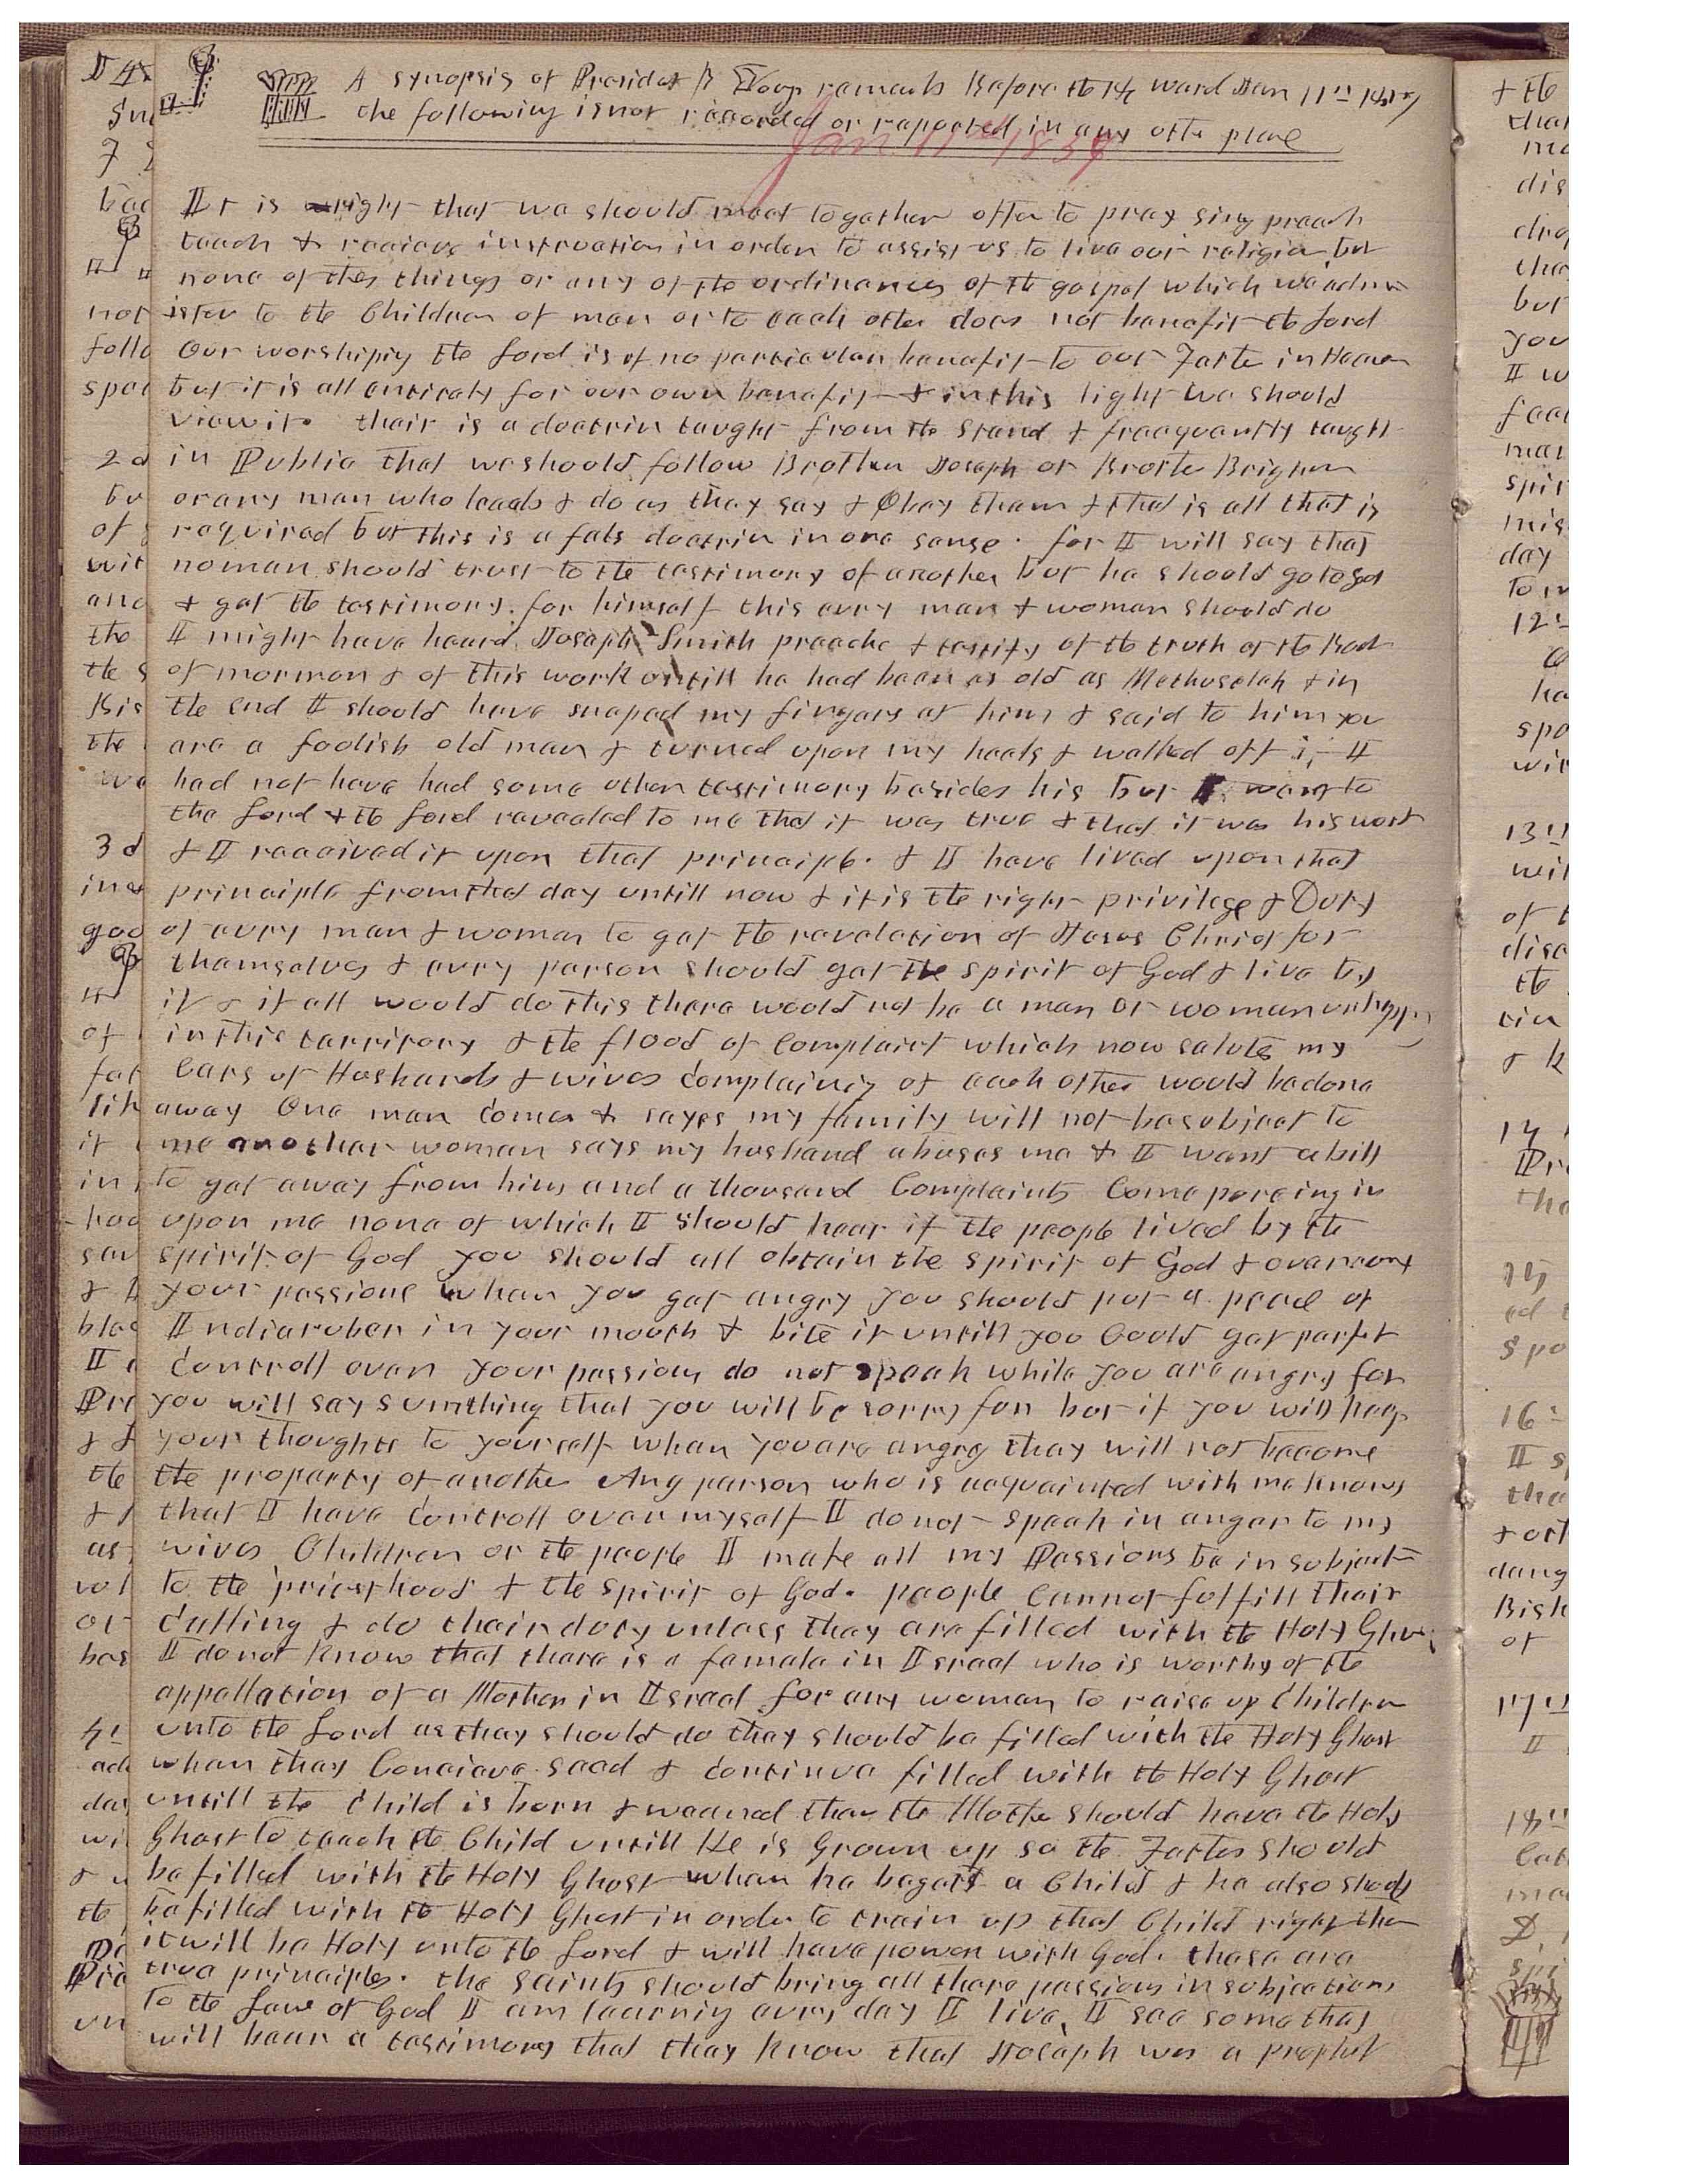 A synopsis of Presidet B Young remarks Before the 14 ward Jan 11th 1857
the following is not recorded or reported in any othe place
Jan. 11th 1857
It is right that we should meet together often to pray sing preach
teach & receieve instruction in order to assist us to live our religion, but
none of thes things or any of the ordinances of the gospel which we admin
ister to the Children of men or to each other does not benefit the Lord
Our worshiping the Lord is of no particular benefit to our Father in Heaven
but it is all entirely for our own benefit & in this light we should
view it. their is a doctrin taught from the stand & freequently taught
in Public that we should follow Brother Joseph or Brother Brigham
or any man who leads & do as they say & Obey them & that is all that is
required but this is a fals doctrin in one sense. for I will say that
no man should trust to the testimony of another but he should go to God
& get the testimony for himself this evry man & woman should do
I might have heard Joseph Smith preache & testify of the truth of the Book
of mormon & of this work untill he had been as old as Methuselah & in
the end I should have snaped my fingers at him & said to him you
are a foolish old man & turned upon my heels & walked off if I
had not have had some other testimony besides his but I went to
the Lord & the Lord revealed to me that it was true & that it was his work
& I receeived it upon that principle. & I have lived upon that
principle from that day untill now & it is the right privilege & Duty
of evry man & woman to get the revelation of Jesus Christ for
themselves & evry person should get the spirit of God & live by
it & if all would do this there would not be a man or woman unhappy
in this territory & the flood of Complaint which now salutes my
Ears of Husbands & wives Complaining of each other would be done
away One man Comes & sayes my family will not be subject to
me another woman says my husband abuses me & I want a bill
to get away from him and a thousand Complaints Come poreing in
upon me none of which I should hear if the people lived by the
spirit of God you should all obtain the spirit of God & overcome
your passions when you get angry you should put a peace of
Indiaruber in your mouth & bite it untill you Could get parfet
Controll over your passions do not speak while you are angry for
you will say sumthing that you will be sorry for but if you will keep
your thoughts to yourself when you are angry they will not become
the property of another Any person who is acquainted with me knows
that I have Controll over myself I do not speak in anger to my
wives Children or the people I make all my Passions be in subject
to the priesthood & the spirit of God. people Cannot fulfill their
Calling & do their duty unless they are filled with the Holy Ghost
I do not know that there is a female in Israel who is worthy of the
appellation of a Mother in Israel for any woman to raise up Children
unto the Lord as they should do they should be filled with the Holy Ghost
when they Conceieve seed & Continue filled with the Holy Ghost
untill the Child is born & weaned then the Mother should have the Holy
Ghost to teach the Child untill He is Grown up so the Father should
be filled with the Holy Ghost when he begets a Child & he also should
be filled with the Holy Ghost in order to train up that Child right then
it will be Holy unto the Lord & will have power with God. these are
true principles. the saints should bring all there passions in subjection
to the Law of God I am learning evry day I live, I see some that
will bear a testimony that they know that Joseph was a prophet